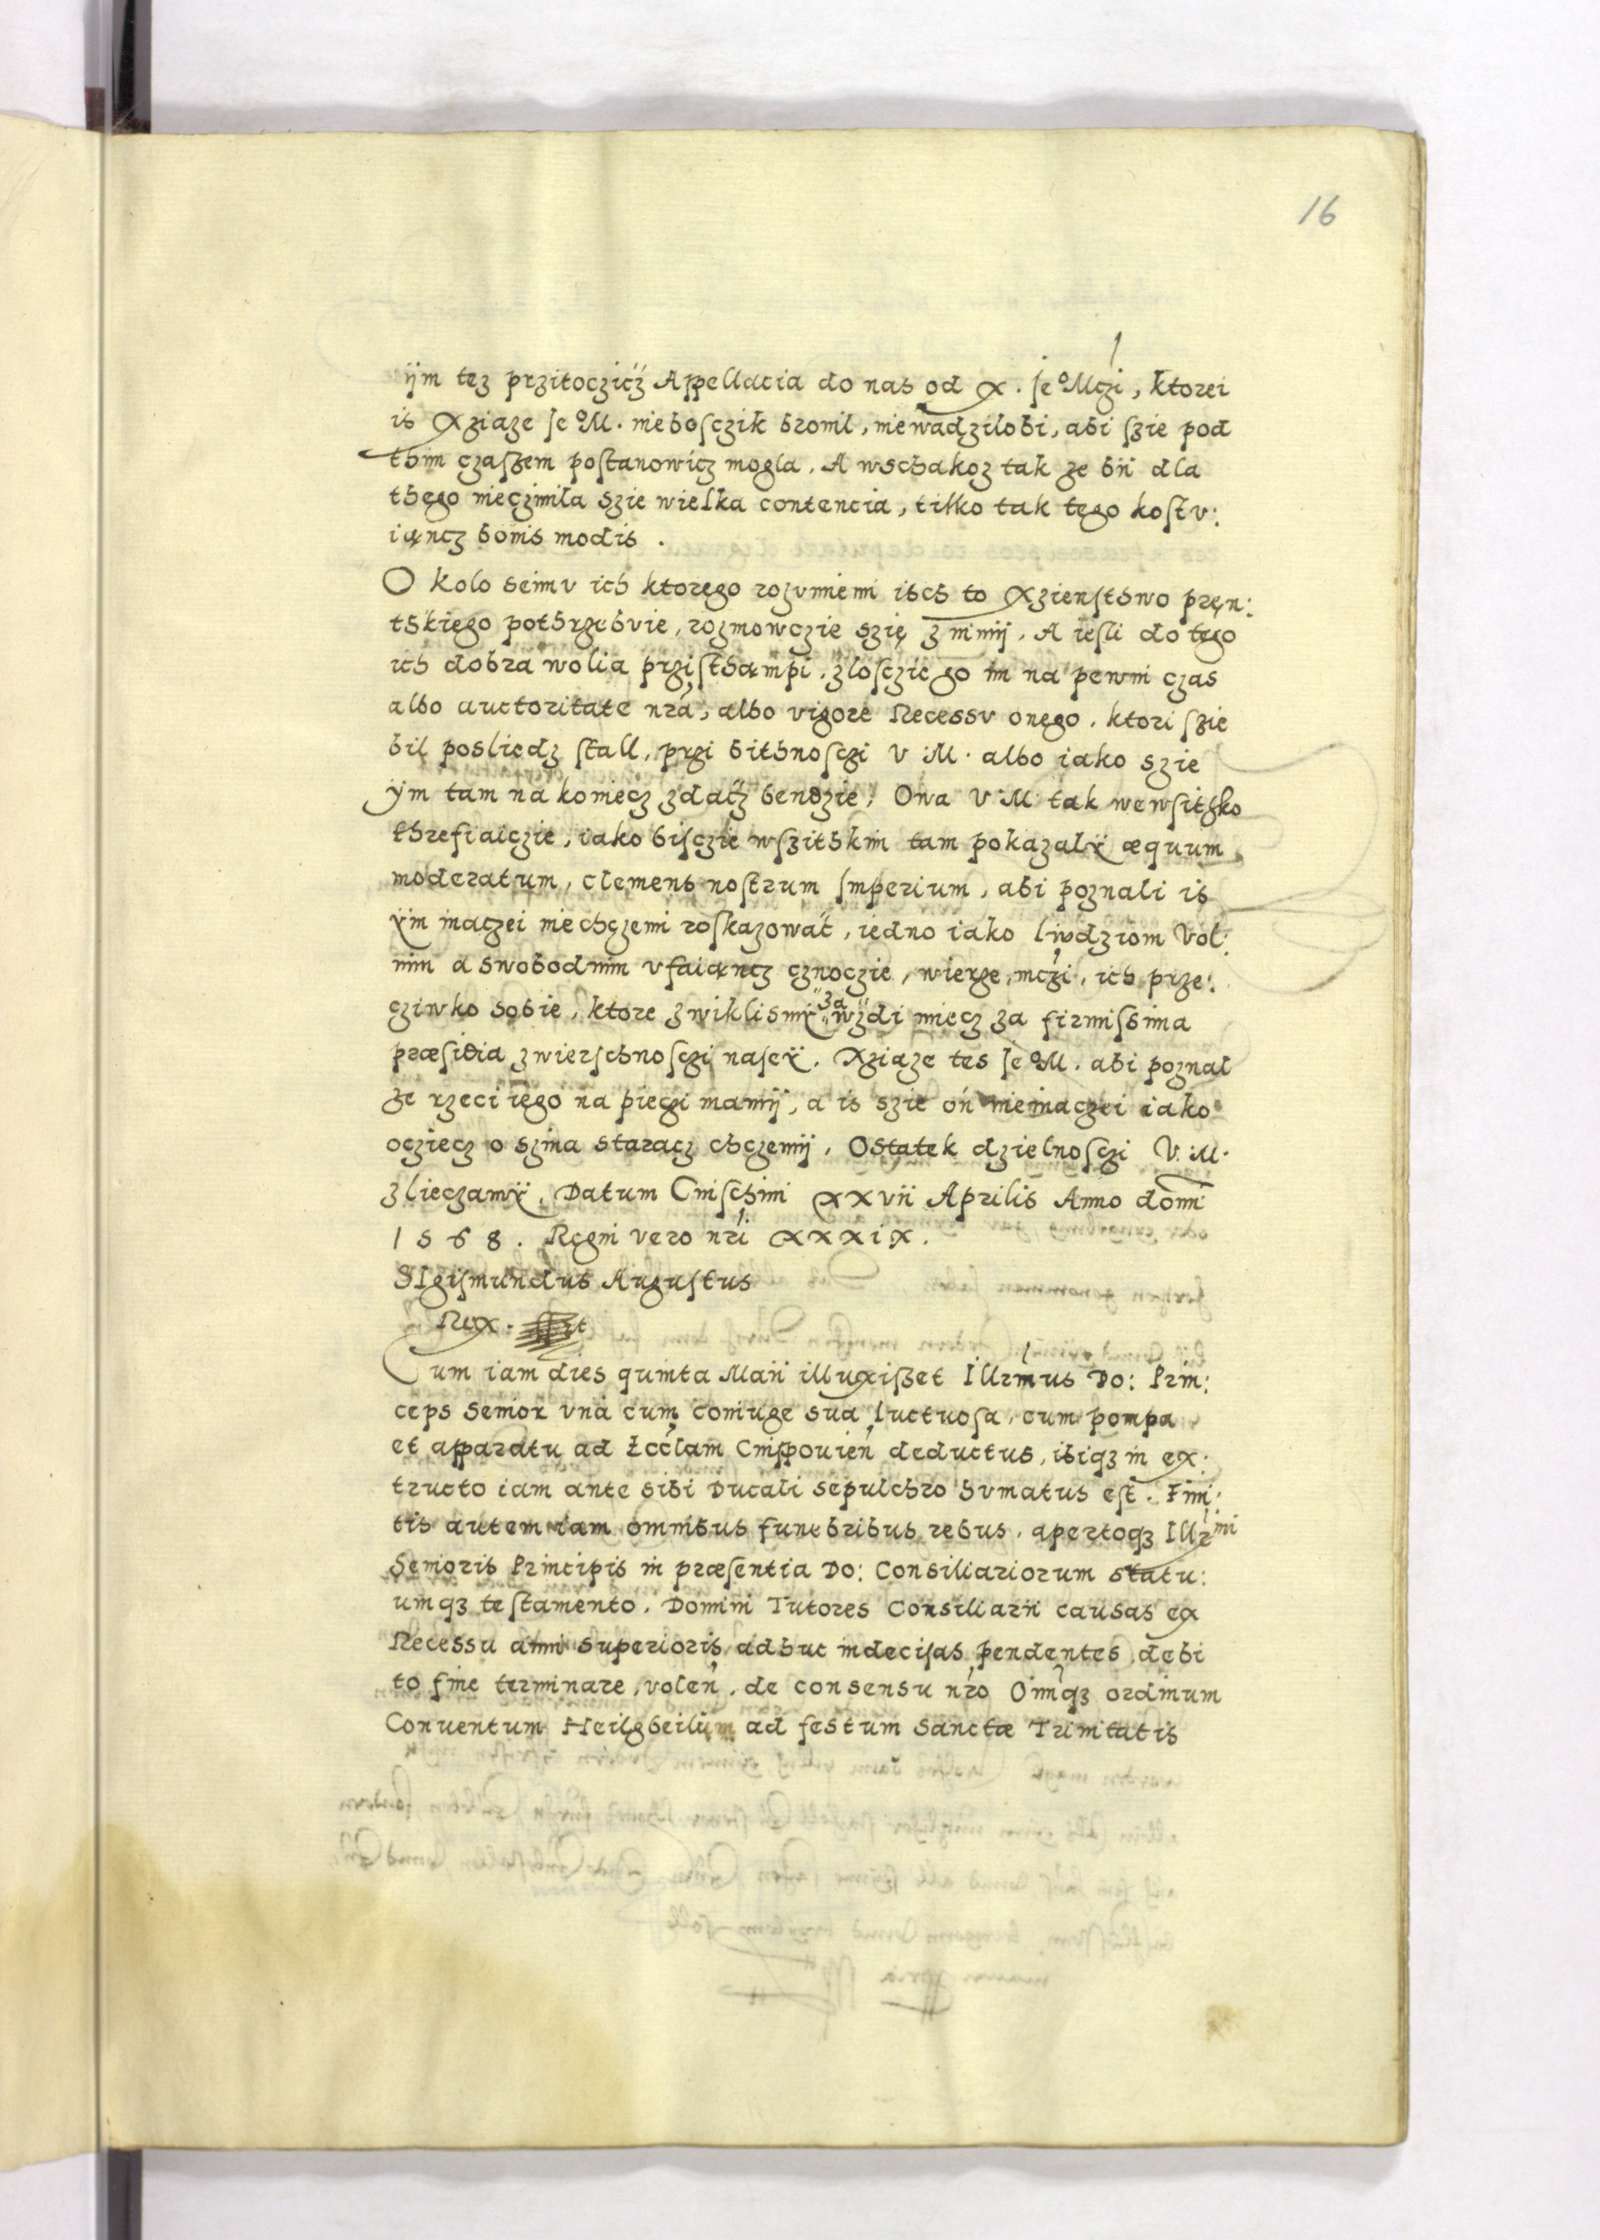 16
ijm tez przitocziċz Appellacia do nas od X. Je Mczi, ktorei
is Xziaze Je M. nieboſczik bronil, niewadzilobi, abi ſzie pod
thim czaſzem poſtanowicz mogla. A wschakoz tak ze bij dla
thego nieczinila szie wielka contencia, tilko tak tego koſtu:
iąncz bonis modis.
O kolo seimu ich ktorego rozumiemi isch to Xzienſthwo pręn:
tskiego pothrzebuie, rozmowczie szię z nimij. A ieſli do tego
ich dobra wolia przi ſthąmpi. zloſcziego im na pewni czas
albo auctoritate nrã, albo vigore Recessu onego. ktori ſzie
bil poſliedz ſtall, przi bithnoſczi V M. albo iako szie
ÿm tam na koniecz zdaċz bendzie, Owa V M tak wewsitzko
threfiaiczie, iako biſczie wſzitskim tam pokazalÿ æquum
moderatum, clemens noſtrum Imperium, abi poznali is
ÿm inaczei niechczemi roſkazować, iedno iako liudziom Vol:
nim a swobodnim vfaiąncz cznoczie, wierze, mczi, ich prze:
cziwko sobie, ktore zwiklismÿ za wzdi miecz za firmiſsima
præſidia zwierſchnoſczi naſeÿ. Xziaze tes Je M. abi poznał
że rzeci iego na pieczi mamij, a is szie oń nieinaczei iako
oczięcz o szina staracz chczemij. Ostatek dzielnoſczi V. M.
zlieczamÿ. Datum Cniſchini XXVII Aprilis Anno domi
1568. Regni vero nri XXXIX.
SIgiſmundus Auguſtus
Rex.
Cum iam dies quinta Maii illuxiſset Illrmus Do: Prin:
ceps Senior vnà cum coniuge sua luctuoſa, cum pompa
et apparatu ad Eccłam Cnippouien deductus, ibiqz in ex:
tructo iam ante sibi Ducali sepulchro humatus eſt. Fini:
tis autem iam omnibus funebribus rebus, apertoqz Illrmi
Senioris Principis in præſentia Do: Consiliariorum statu:
umqz teſtamento. Domini Tutores Consiliarii causas ex
Recessu anni superioris adhuc indeciſas pendentes debi
to fine terminare, volen, de consensu nro Oimqz ordinum
Conuentum Heilgbeilium ad festum Sanctæ Trinitatis